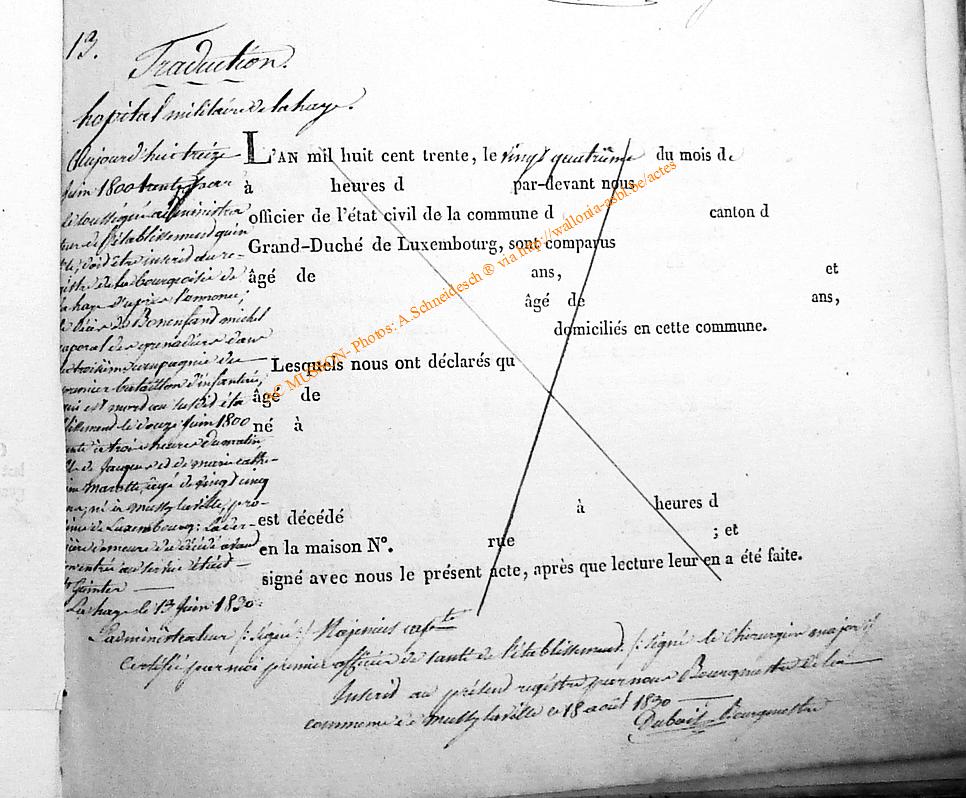 13.
Traduction.
hopital militaire de la haye.
Aujourd'hui treize
Juin 1800 trente, par
le soussigné administra
teur de l'établissement qu'en
doit être inscrit au re-
gistre de la bourgeoisie de
la haye d'après l'annonce,
le décès de Bonenfand michel
caporal des grenadiers dans
la troisième compagnie du
premier bataillon d'infanterie,
qui est mort au susdit éta
blissement le douze Juin 1800
trente à trois heures du matin,
fils de Jacques et de marie cathe-
rine Marotte, âgé de vingt cinq
ans, né à Mussy la ville, pro-
vince de Luxembourg: la der-
nière demeure du décédé avant
son entrée au service était
St Quintin
La haye le 13 Juin 1830.
L'AN mil huit cent trente, le vingt quatrième du mois de
à heures d par-devant nous
officier de l'état civil de la commune d canton d
Grand-Duché de Luxembourg, sont comparus
âgé de ans, et
âgé de ans,
domiciliés en cette commune.
Lesquels nous ont déclarés qu
âgé de
né à
est décédé à heures d
en la maison N°. rue ; et
signé avec nous le présent acte, après que lecture leur en a été faite.
L'administrateur /: signé :/
Certifié par moi premier officier de santé de l'établissement. /: signé le chirurgien major :/
Inscrit au présent registre par nous Bourgmestre de la
commune de Mussy la ville ce 18 août 1830
Dubois Bourgmestre
AC MUSSON- Photos: A.Schneidesch ® via http://wallonia-asbl.be/actes